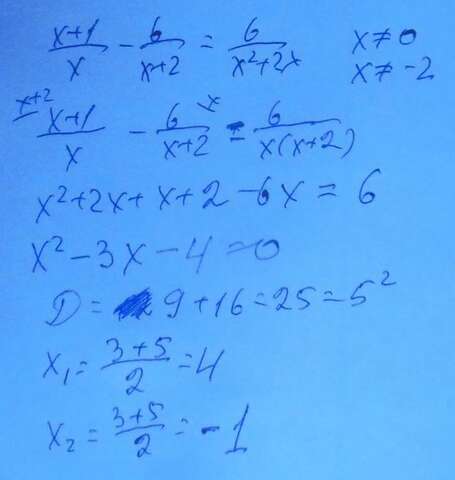 (x+1)/x - 6/(x+2) = 6/(x²+2x) x≠0
x≠-2
x+2 (x+1)/x - 6/(x+2) x = 6/(x(x+2))
x²+2x+x+2-6x=6
x²-3x-4=0
D= 9+16=25=5²
x₁=(3+5)/2=4
x₂=(3+5)/2=-1